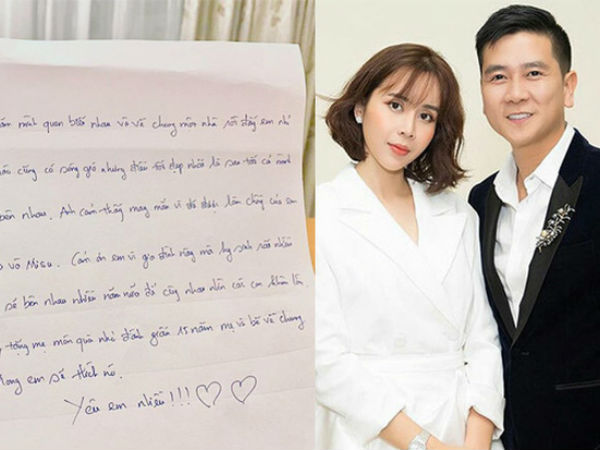 năm mình quen biết nhau và về chung một nhà rồi đấy em nhỉ
nào cũng có sóng gió nhưng điều tốt đẹp nhất là sau tất cả mình
bên nhau. Anh cảm thấy may mắn vì đã được làm chồng của em
và Misu. Cảm ơn em vì gia đình này mà hy sinh rất nhiều
sẽ bên nhau nhiều năm nữa để cùng nhau nhìn các con khôn lớn.
tặng mẹ món quà nhỏ đánh giấu 15 năm mẹ và bố về chung
Mong em sẽ thích nó.
Yêu em nhiều!!! ♡ ♡